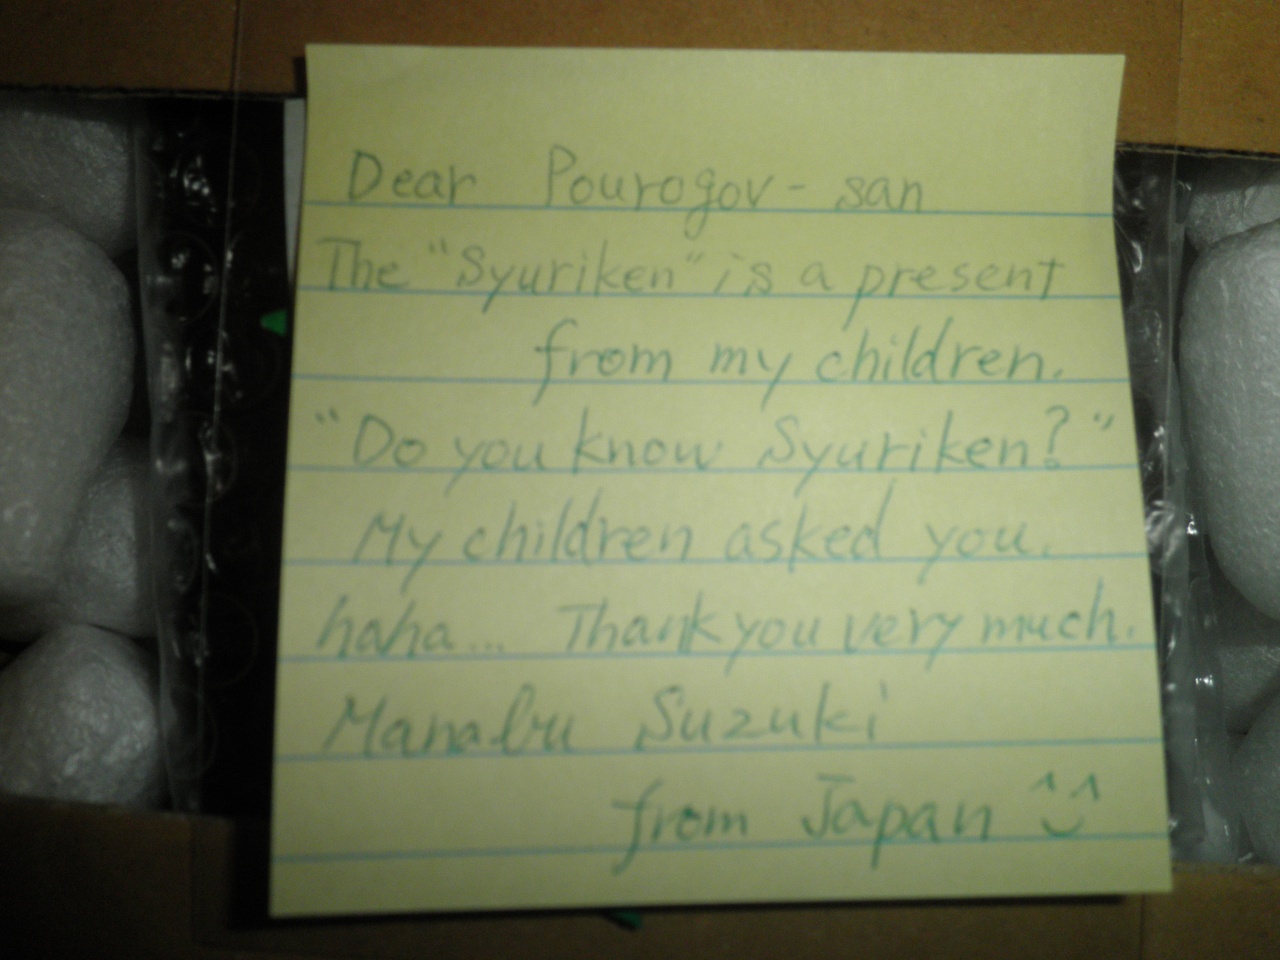 Dear Pourogov-san
The "Syuriken" is a present
from my children.
"Do you know Syuriken?"
My children asked you.
haha... Thank you very much.
Manabu Suzuki
from Japan ^^